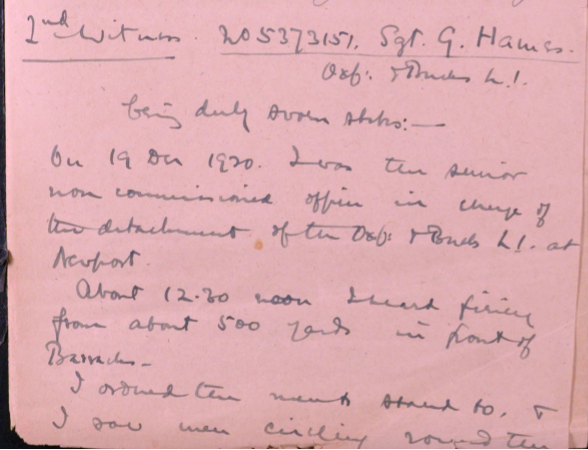 2nd Witness. No 5373151. Sgt. G. Hames.
Oxf: & Bucks L.I.
being duly sworn states:—
On 19 Dec 1920. I was the senior
non commissioned officer in charge of
the detachment of the Oxf: & Bucks L.I. at
Newport.
About 12.30 noon I heard firing
from about 500 yards in front of
Barracks—
I ordered the men to stand to. &
I saw men circling round the